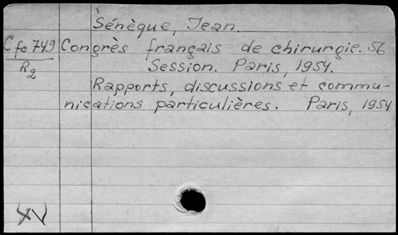 Sénèque, Jean.
Cfc 749 Congrès français de chirurgie. 56
R2 Session. Paris, 1954.
Rapports, discussions et commu-
nications particulières. Paris, 1954
XV